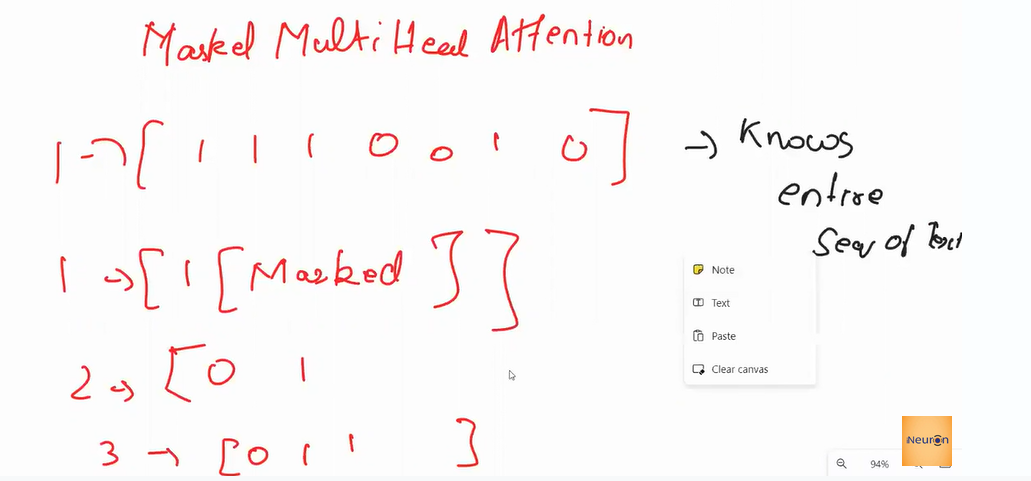 Masked Multi Head Attention
1 → [ 1 1 1 0 0 1 0 ] → Knows
entire
Seq of Text
1 → [ 1 [ Masked ] ]
2 → [ 0 1
3 → [ 0 1 1 ]
Note
Text
Paste
Clear canvas
iNeuron
94%